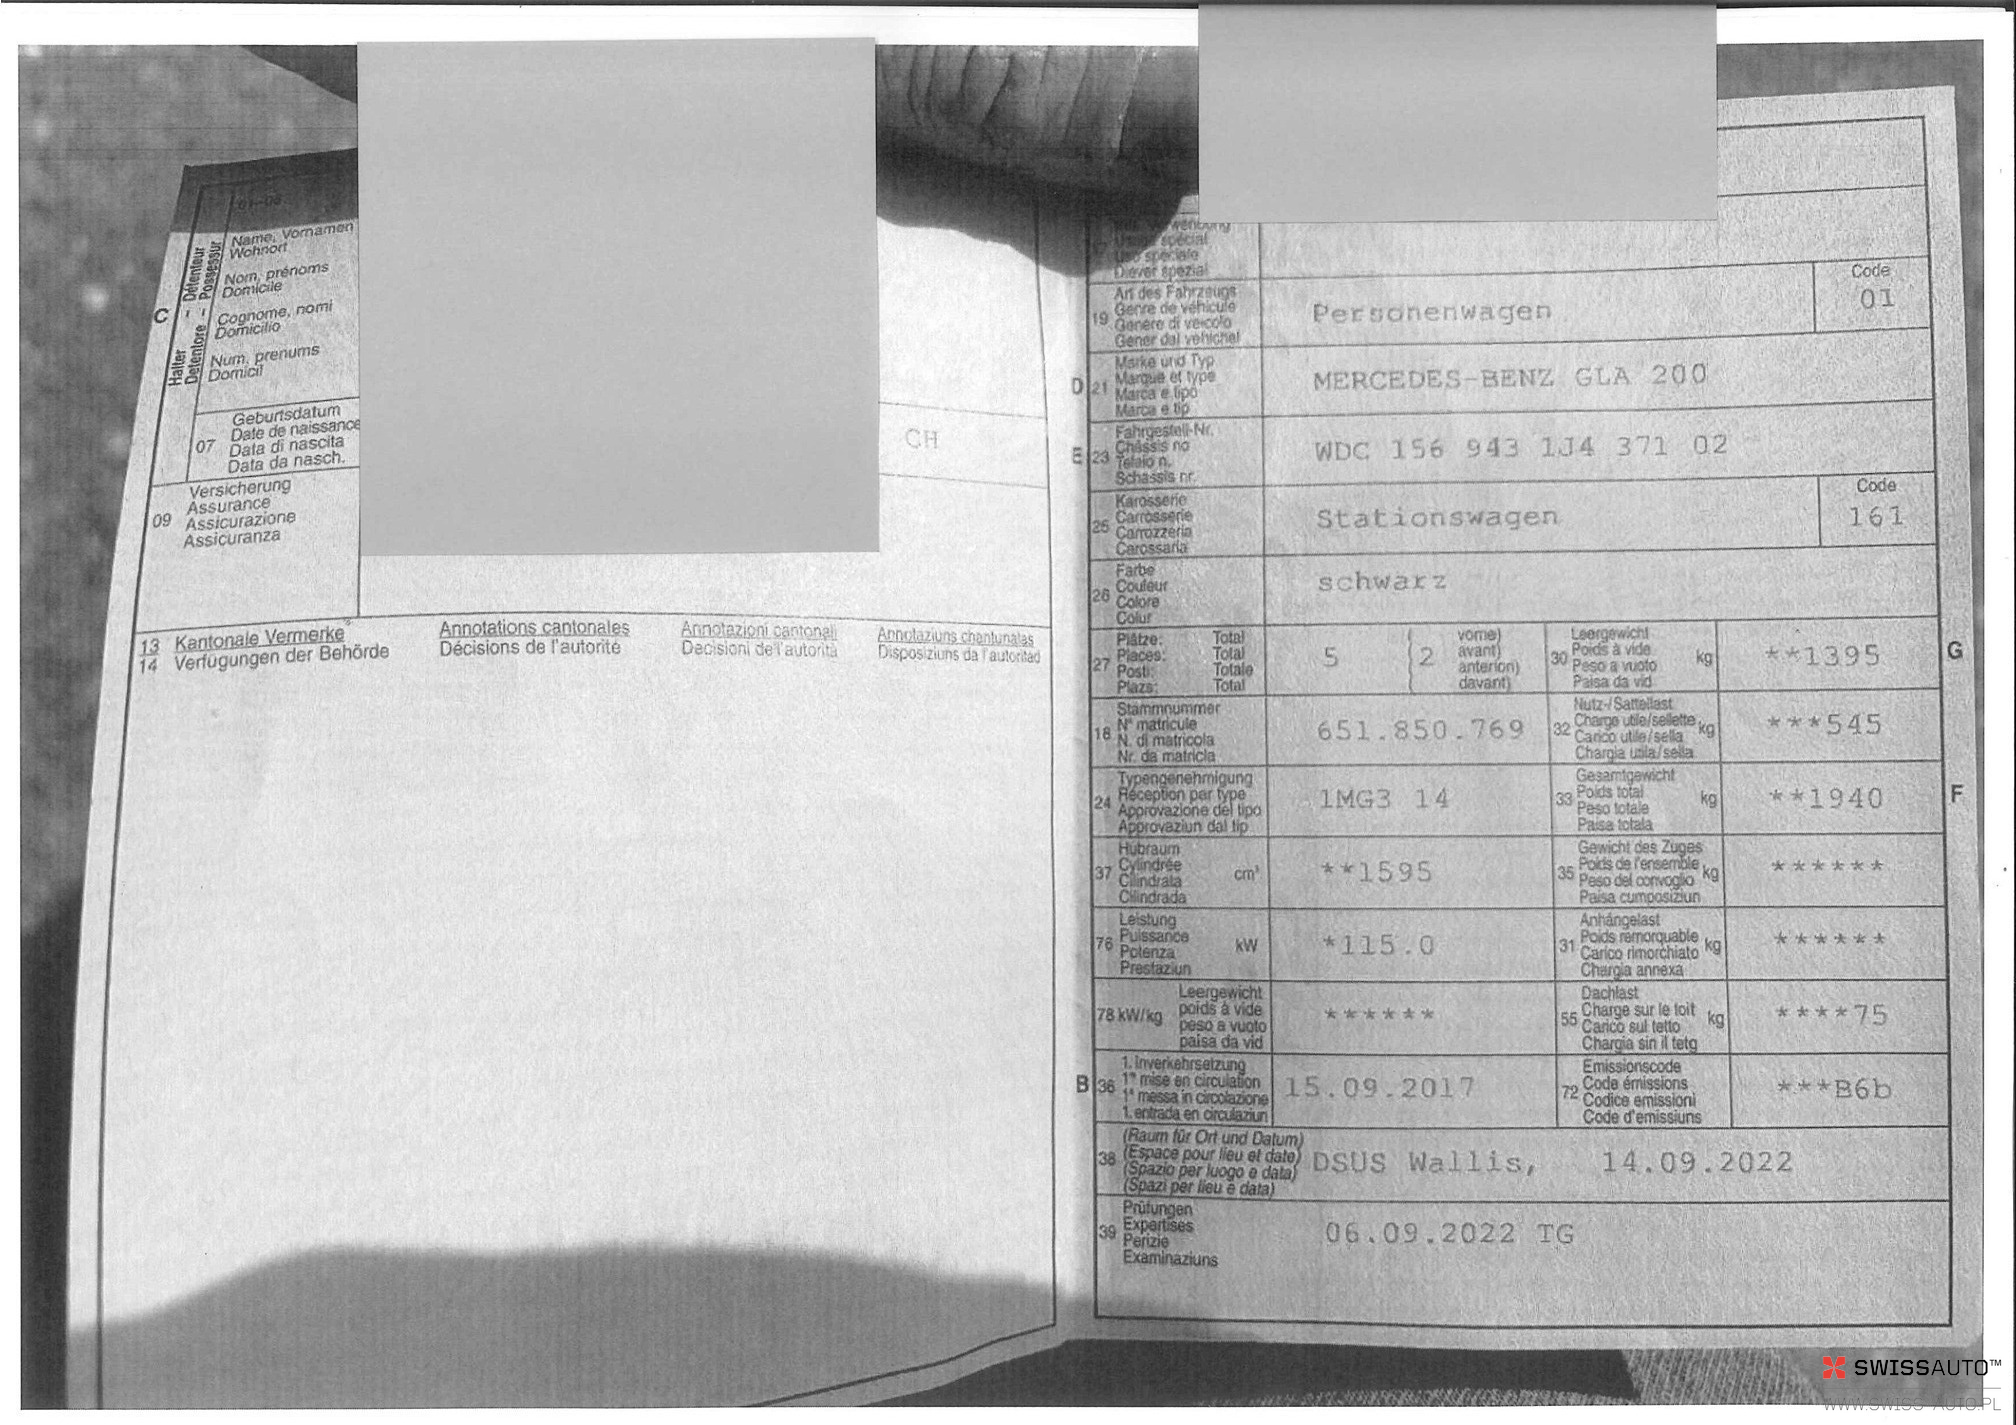 Name, Vornamen
Wohnort
Nom, prénoms
Domicile
Cognome, nomi
Domicilio
Num, prenums
Domicil
C
Halter - Détenteur
Detentore - Possessur
07
Geburtsdatum
Date de naissance
Data di nascita
Data da nasch.
CH
09
Versicherung
Assurance
Assicurazione
Assicuranza
13 Kantonale Vermerke Annotations cantonales Annotazioni cantonali Annotaziuns chantunalas
14 Verfügungen der Behörde Décisions de l'autorité Decisioni de l'autorità Disposiziuns da l'autoritad
Usage spécial
Uso speciale
Diever spezial
19
Art des Fahrzeugs
Genre de véhicule
Genere di veicolo
Gener dal vehichel
Personenwagen
Code
01
D 21
Marke und Typ
Marque et type
Marca e tipo
Marca e tip
MERCEDES-BENZ GLA 200
E 23
Fahrgestell-Nr.
Châssis no
Telaio n.
Schassis nr.
WDC 156 943 1J4 371 02
25
Karosserie
Carrosserie
Carrozzeria
Carossaria
Stationswagen
Code
161
26
Farbe
Couleur
Colore
Colur
schwarz
27
Plätze: Total
Places: Total
Posti: Totale
Plazs: Total
5 ( 2
vorne)
avant)
anteriori)
davant)
30
Leergewicht
Poids à vide
Peso a vuoto
Paisa da vid
kg
**1395
G
18
Stammnummer
N° matricule
N. di matricola
Nr. da matricla
651.850.769
32
Nutz-/Sattellast
Charge utile/sellette
Carico utile/sella
Chargia utila/sella
kg
***545
24
Typengenehmigung
Réception par type
Approvazione del tipo
Approvaziun dal tip
1MG3 14
33
Gesamtgewicht
Poids total
Peso totale
Paisa totala
kg
**1940
F
37
Hubraum
Cylindrée
Cilindrata
Cilindrada
cm³
**1595
35
Gewicht des Zuges
Poids de l'ensemble
Peso del convoglio
Paisa cumposiziun
kg
******
76
Leistung
Puissance
Potenza
Prestaziun
kW
*115.0
31
Anhängelast
Poids remorquable
Carico rimorchiato
Chargia annexa
kg
******
78 kW/kg
Leergewicht
poids à vide
peso a vuoto
paisa da vid
******
55
Dachlast
Charge sur le toit
Carico sul tetto
Chargia sin il tetg
kg
****75
B 36
1. Inverkehrsetzung
1re mise en circulation
1a messa in circolazione
1. entrada en circulaziun
15.09.2017
72
Emissionscode
Code émissions
Codice emissioni
Code d'emissiuns
***B6b
38
(Raum für Ort und Datum)
(Espace pour lieu et date)
(Spazio per luogo e data)
(Spazi per lieu e data)
DSUS Wallis, 14.09.2022
39
Prüfungen
Expertises
Perizie
Examinaziuns
06.09.2022 TG
SWISSAUTO™
WWW.SWISS-AUTO.PL